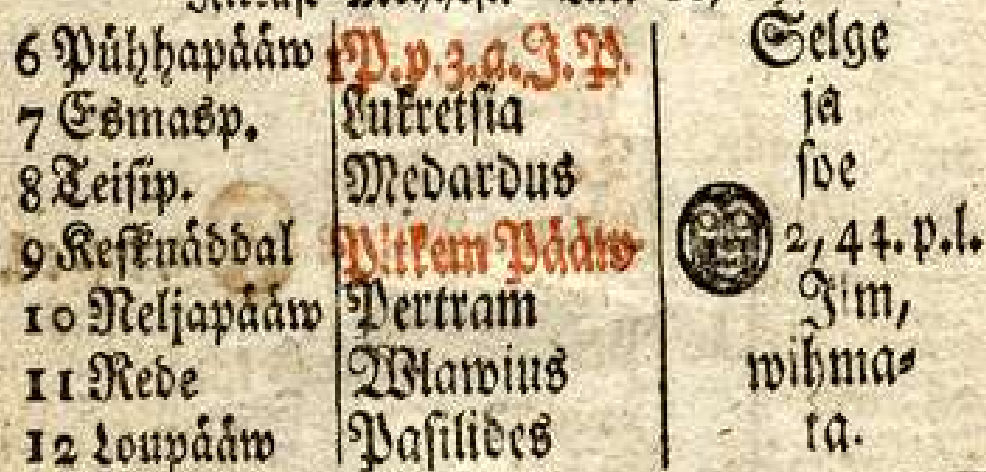 6 Pühhapääw 1 P. p. z. a. J. P. Selge
7 Esmasp. Lukretsia ja
8 Teisip. Medardus soe
9 Kesknäddal Pitkem Pääw 2, 44. p. l.
10 Neljapääw Pertram Jlm,
11 Rede Wlawius wihma⸗
12 Loupääw Pasilides ta.